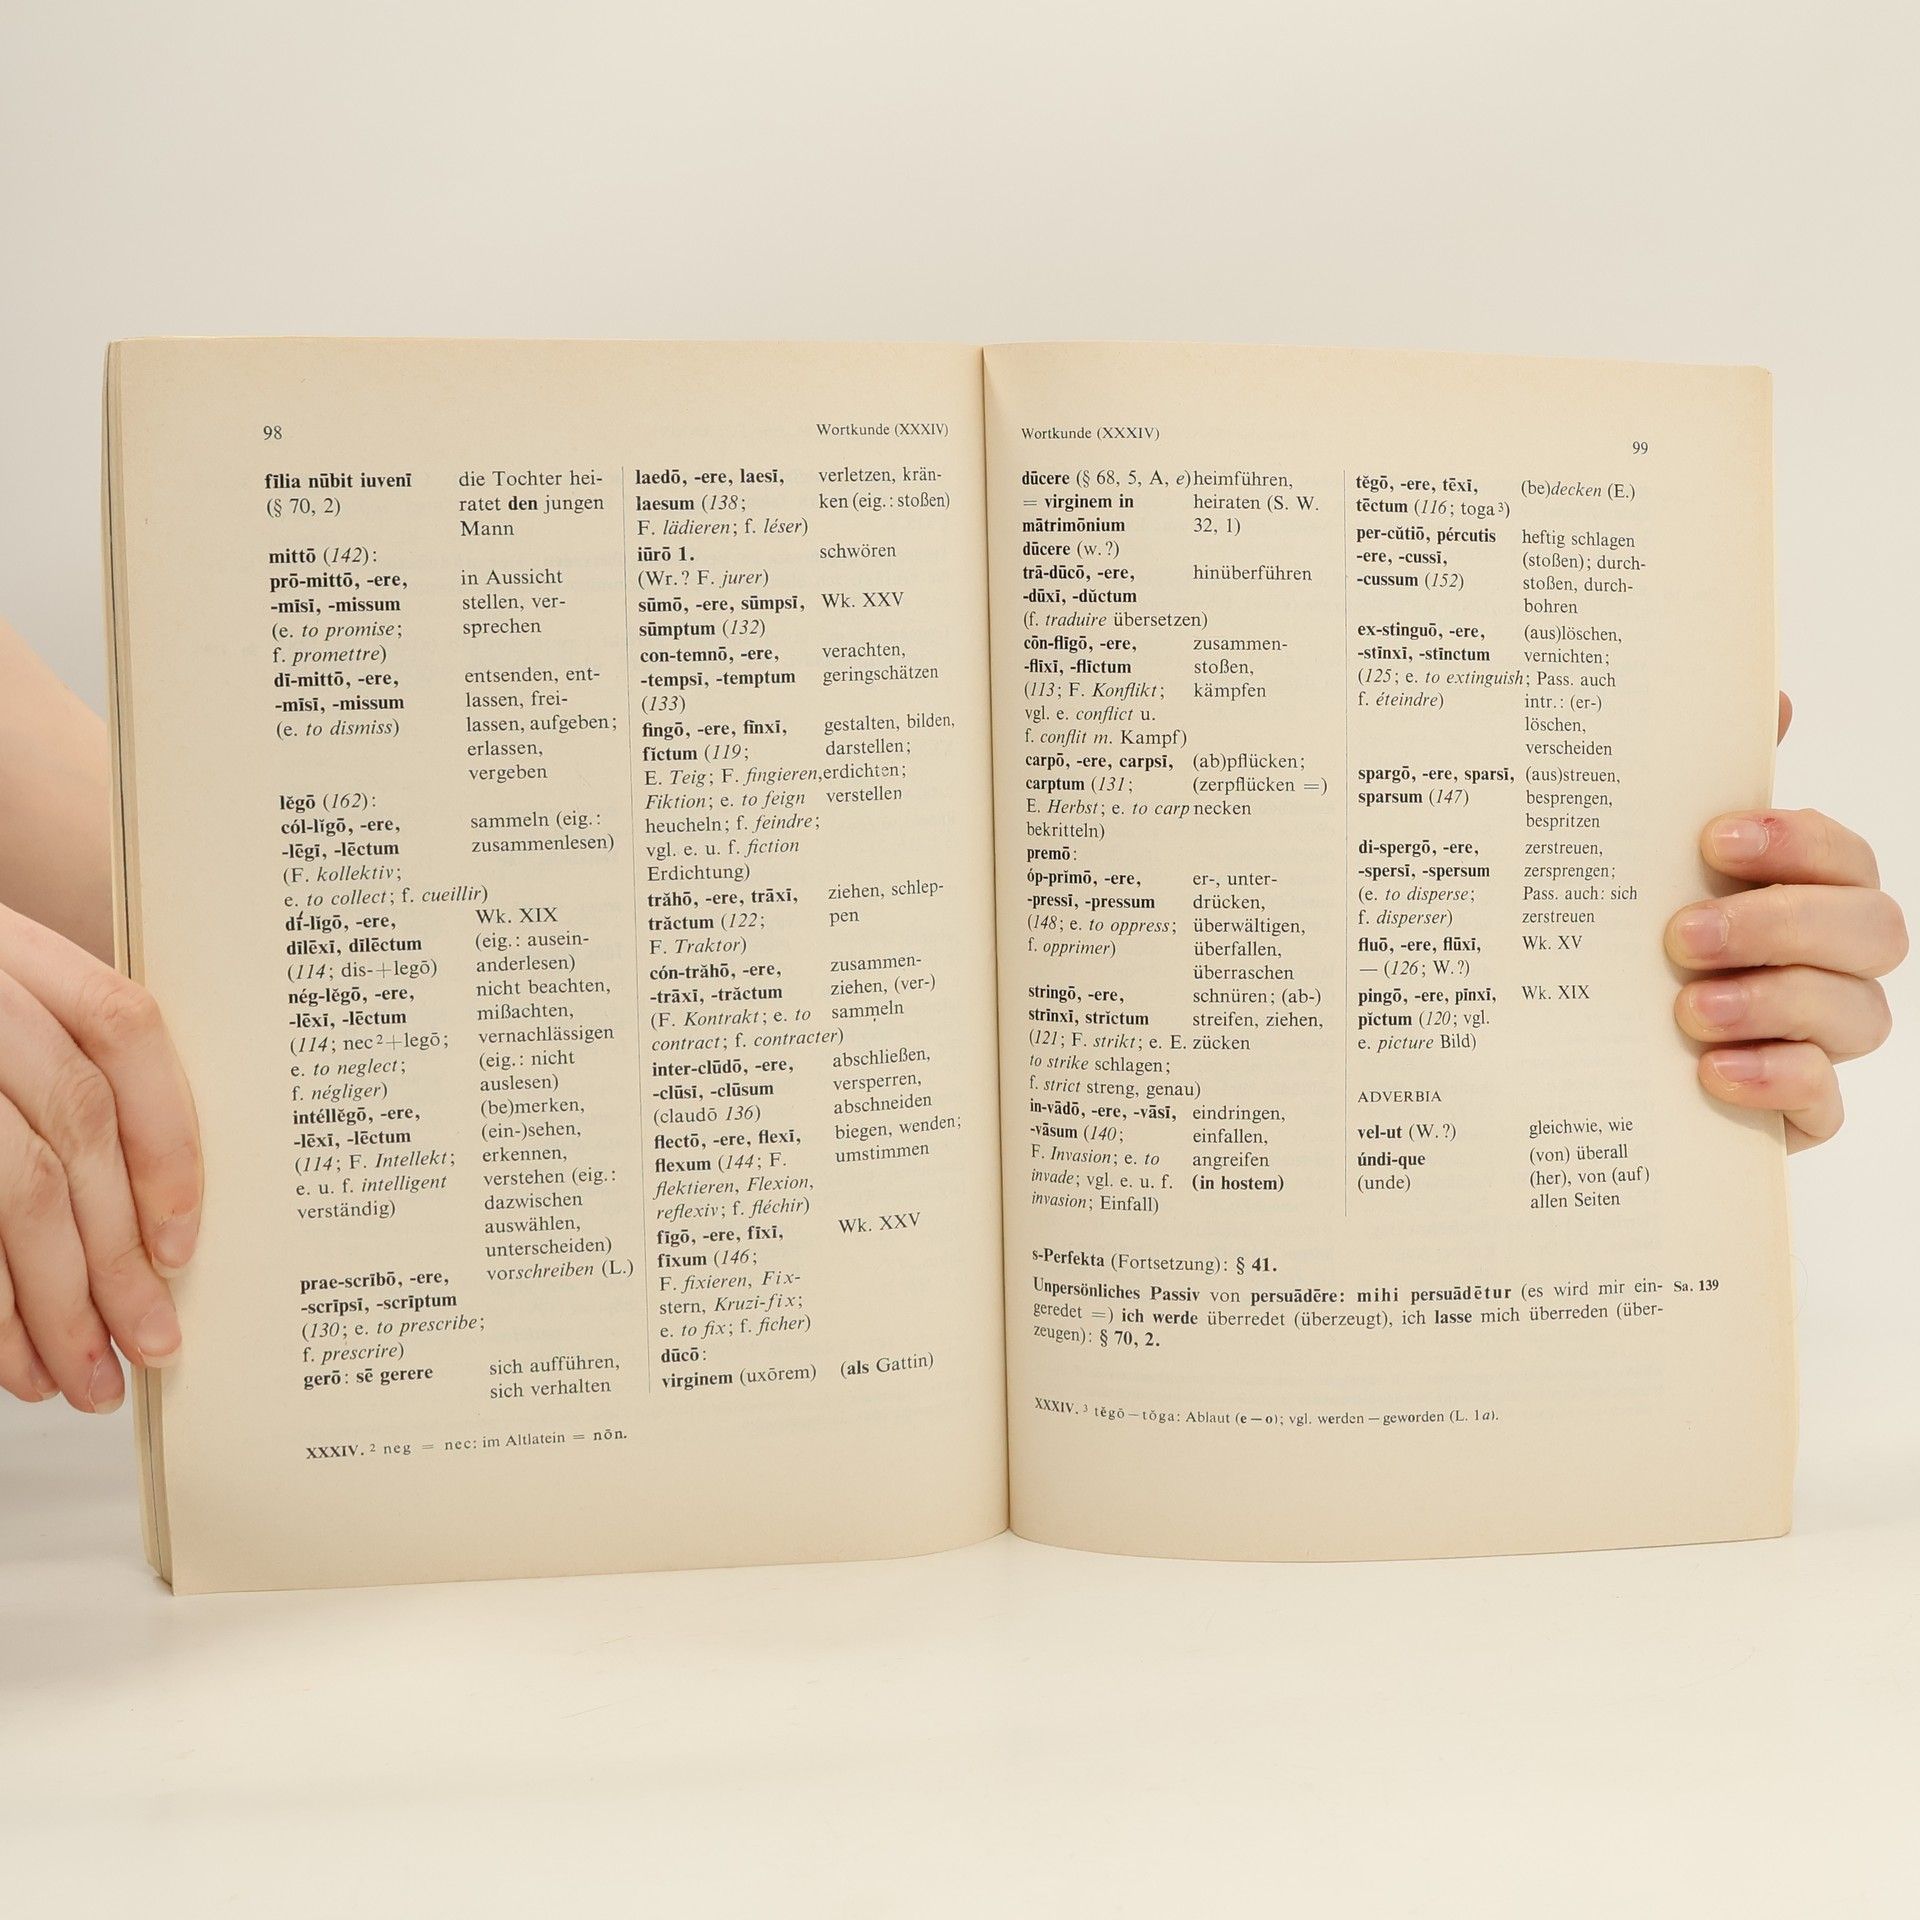 98
Wortkunde (XXXIV)
fīlia nūbit iuvenī die Tochter hei-
(§ 70, 2) ratet den jungen
Mann
mittō (142):
prō-mittō, -ere, in Aussicht
-mīsī, -missum stellen, ver-
(e. to promise; sprechen
f. promettre)
dī-mittō, -ere, entsenden, ent-
-mīsī, -missum lassen, frei-
(e. to dismiss) lassen, aufgeben;
erlassen,
vergeben
lĕgō (162):
cól-lĭgō, -ere, sammeln (eig.:
-lēgī, -lēctum zusammenlesen)
(F. kollektiv;
e. to collect; f. cueillir)
dī́-lĭgō, -ere, Wk. XIX
dīlēxī, dīlēctum (eig.: ausein-
(114; dis-+legō) anderlesen)
nég-lĕgō, -ere, nicht beachten,
-lēxī, -lēctum mißachten,
(114; nec²+legō; vernachlässigen
e. to neglect; (eig.: nicht
f. négliger) auslesen)
intéllĕgō, -ere, (be)merken,
-lēxī, -lēctum (ein-)sehen,
(114; F. Intellekt; erkennen,
e. u. f. intelligent verstehen (eig.:
verständig) dazwischen
auswählen,
unterscheiden)
prae-scrībō, -ere, vorschreiben (L.)
-scrīpsī, -scrīptum
(130; e. to prescribe;
f. prescrire)
gerō: sē gerere sich aufführen,
sich verhalten
laedō, -ere, laesī, verletzen, krän-
laesum (138; ken (eig.: stoßen)
F. lädieren; f. léser)
iūrō 1. schwören
(Wr.? F. jurer)
sūmō, -ere, sūmpsī, Wk. XXV
sūmptum (132)
con-temnō, -ere, verachten,
-tempsī, -temptum geringschätzen
(133)
fingō, -ere, fīnxī, gestalten, bilden,
fĭctum (119; darstellen;
E. Teig; F. fingieren, erdichten;
Fiktion; e. to feign verstellen
heucheln; f. feindre;
vgl. e. u. f. fiction
Erdichtung)
trăhō, -ere, trāxī, ziehen, schlep-
trăctum (122; pen
F. Traktor)
cón-trăhō, -ere, zusammen-
-trāxī, -trăctum ziehen, (ver-)
(F. Kontrakt; e. to sammeln
contract; f. contracter)
inter-clūdō, -ere, abschließen,
-clūsī, -clūsum versperren,
(claudō 136) abschneiden
flectō, -ere, flexī, biegen, wenden;
flexum (144; F. umstimmen
flektieren, Flexion,
reflexiv; f. fléchir)
fīgō, -ere, fīxī, Wk. XXV
fīxum (146;
F. fixieren, Fix-
stern, Kruzi-fix;
e. to fix; f. ficher)
dūcō:
virginem (uxōrem) (als Gattin)
XXXIV. ² neg = nec: im Altlatein = nōn.
Wortkunde (XXXIV)
99
dūcere (§ 68, 5, A, e) heimführen,
= virginem in heiraten (S. W.
mātrimōnium 32, 1)
dūcere (w.?)
trā-dūcō, -ere, hinüberführen
-dūxī, -dŭctum
(f. traduire übersetzen)
cōn-flīgō, -ere, zusammen-
-flīxī, -flīctum stoßen,
(113; F. Konflikt; kämpfen
vgl. e. conflict u.
f. conflit m. Kampf)
carpō, -ere, carpsī, (ab)pflücken;
carptum (131; (zerpflücken =)
E. Herbst; e. to carp necken
bekritteln)
premō:
óp-prĭmō, -ere, er-, unter-
-pressī, -pressum drücken,
(148; e. to oppress; überwältigen,
f. opprimer) überfallen,
überraschen
stringō, -ere, schnüren; (ab-)
strīnxī, strĭctum streifen, ziehen,
(121; F. strikt; e. E. zücken
to strike schlagen;
f. strict streng, genau)
in-vādō, -ere, -vāsī, eindringen,
-vāsum (140; einfallen,
F. Invasion; e. to angreifen
invade; vgl. e. u. f. (in hostem)
invasion; Einfall)
tĕgō, -ere, tēxī, (be)decken (E.)
tēctum (116; toga³)
per-cŭtiō, pércutis heftig schlagen
-ere, -cussī, (stoßen); durch-
-cussum (152) stoßen, durch-
bohren
ex-stinguō, -ere, (aus)löschen,
-stīnxī, -stīnctum vernichten;
(125; e. to extinguish; Pass. auch
f. éteindre) intr.: (er-)
löschen,
verscheiden
spargō, -ere, sparsī, (aus)streuen,
sparsum (147) besprengen,
bespritzen
di-spergō, -ere, zerstreuen,
-spersī, -spersum zersprengen;
(e. to disperse; Pass. auch: sich
f. disperser) zerstreuen
fluō, -ere, flūxī, Wk. XV
— (126; W.?)
pingō, -ere, pīnxī, Wk. XIX
pĭctum (120; vgl.
e. picture Bild)
ADVERBIA
vel-ut (W.?) gleichwie, wie
úndi-que (von) überall
(unde) (her), von (auf)
allen Seiten
s-Perfekta (Fortsetzung): § 41.
Unpersönliches Passiv von persuādēre: mihi persuādētur (es wird mir ein- Sa. 139
geredet =) ich werde überredet (überzeugt), ich lasse mich überreden (über-
zeugen): § 70, 2.
XXXIV. ³ tĕgō – tŏga: Ablaut (e – o); vgl. werden – geworden (L. 1a).